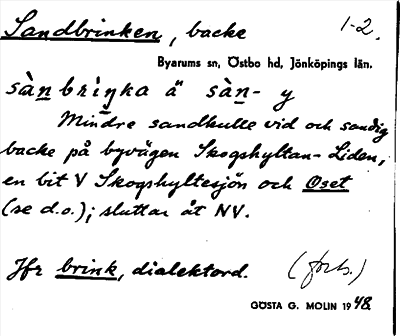 Sandbrinken, backe 1-2.
Byarums sn, Östbo hd, Jönköpings län.
sàn brìŋka ä sàn- y
Mindre sandkulle vid och sandig
backe på byvägen Skogshyltan-Liden,
en bit V Skogshyltesjön och Oset
(se d.o.); sluttar åt NV.
Jfr brink, dialektord. (forts.)
GÖSTA G. MOLIN 1948.